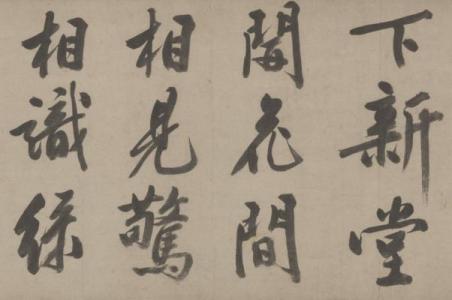 下新堂
開花間
相見驚
相識